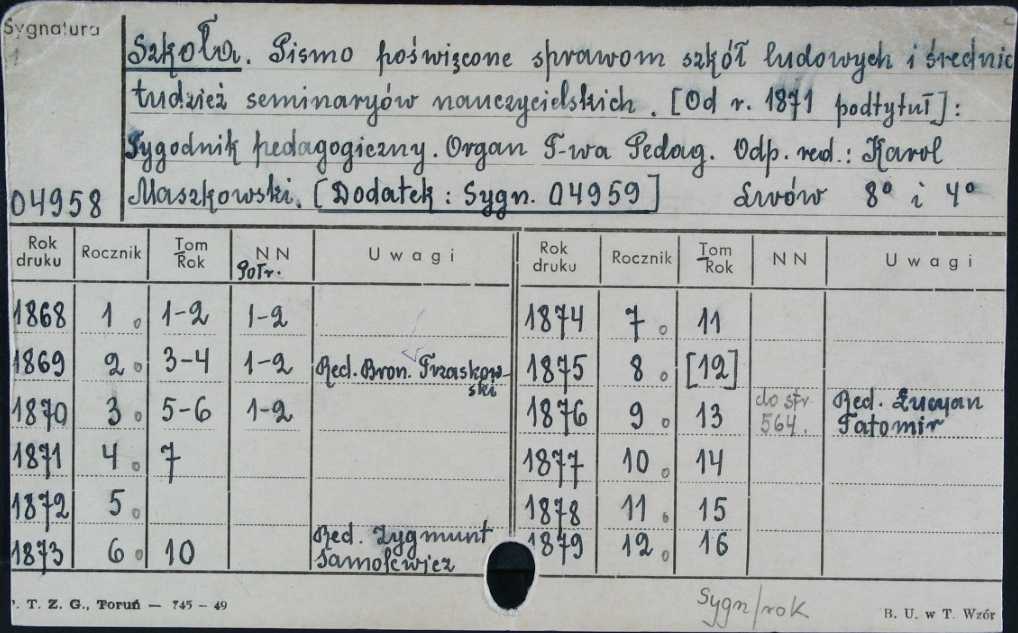 Sygnatura
Szkoła. Pismo poświęcone sprawom szkół ludowych i średnic
tudzież seminaryów nauczycielskich. [Od r. 1871 podtytuł]:
Tygodnik pedagogiczny. Organ T-wa Pedag. Odp. red.: Karol
04958 Maszkowski. [Dodatek: Sygn. 04959] Lwów 8° i 4°
Rok druku Rocznik Tom Rok NN Półr. Uwagi Rok druku Rocznik Tom Rok NN Uwagi
1868 1 1-2 1-2 1874 7 11
1869 2 3-4 1-2 Red. Bron. Trzaskowski 1875 8 [12]
1870 3 5-6 1-2 1876 9 13 do str 564. Red. Łucyan Tatomir
1871 4 7 1877 10 14
1872 5 1878 11 15
1873 6 10 Red. Zygmunt Samolewicz 1879 12 16
Sygn/rok
P. T. Z. G., Toruń — 745 - 49 B. U. w T. Wzór